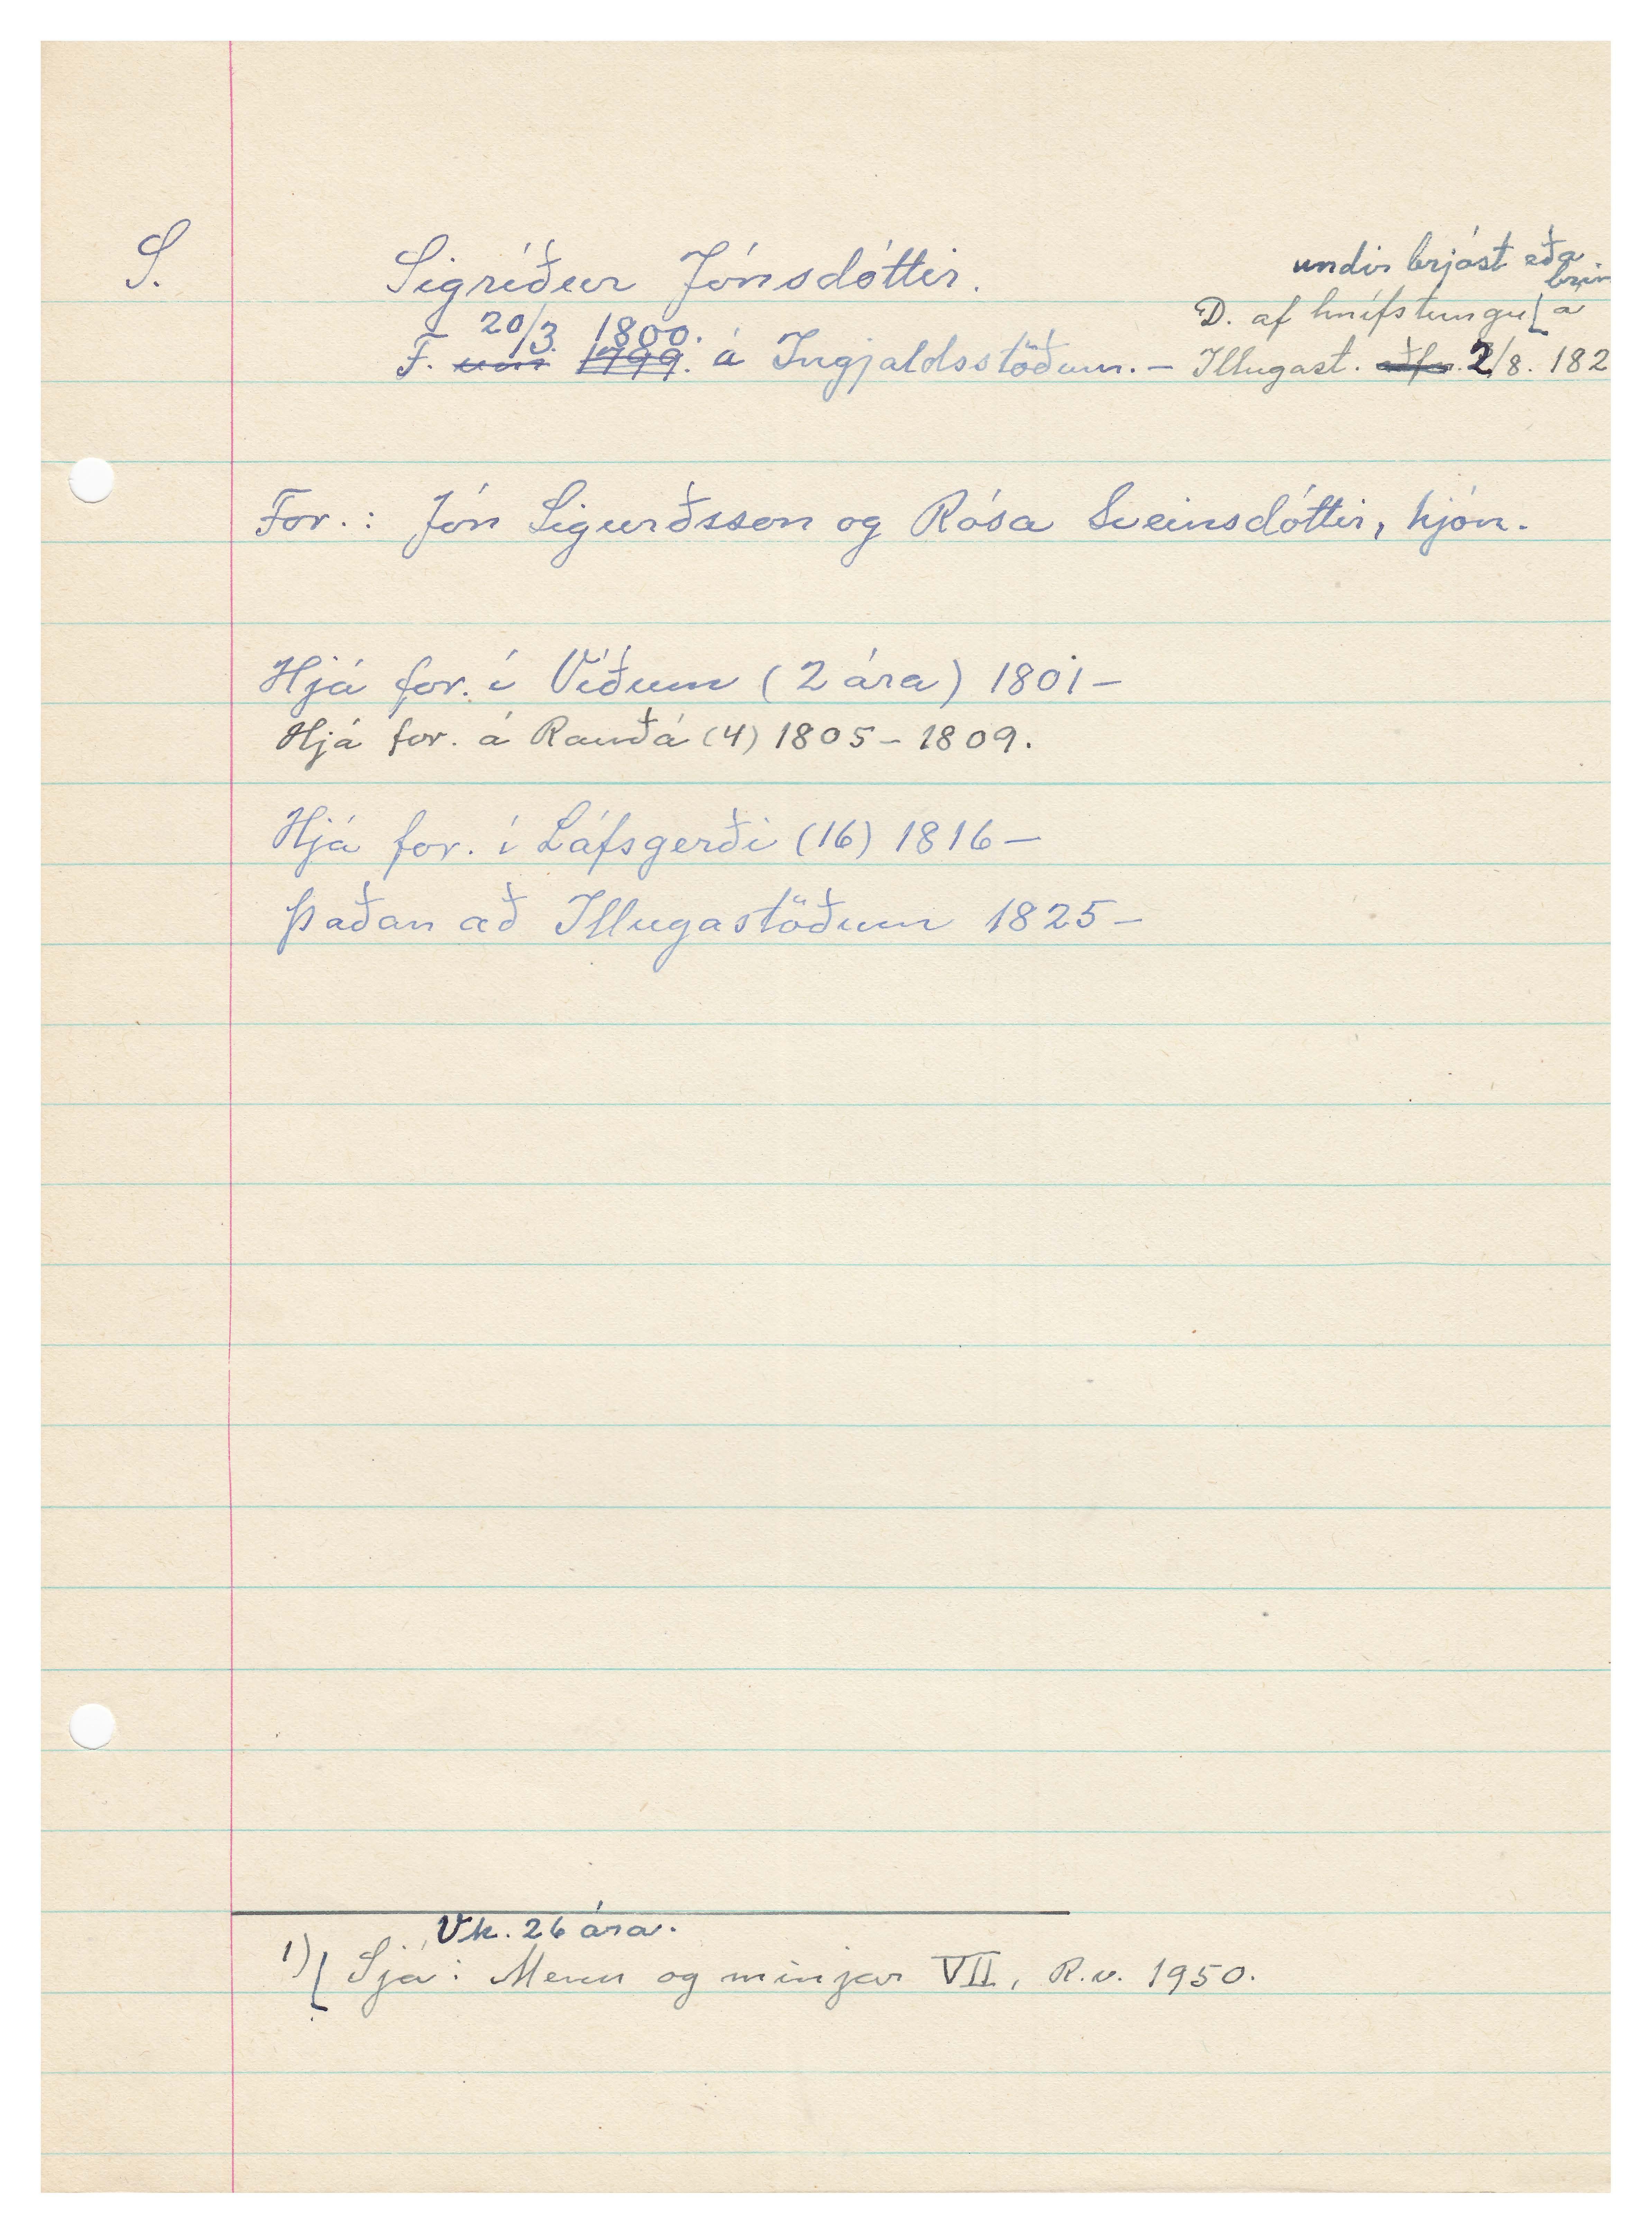 S.
Sigríður Jónsdóttir.
undir brjóst eða
brin
D. af hnífstungu á
20/3 1800.
F. um 1799. á Ingjaldsstöðum. - Illugast. 2/8. 182
For.: Jón Sigurðsson og Rósa Sveinsdóttir, hjón.
Hjá for. í Víðum (2 ára) 1801 -
Hjá for. á Rauðá (4) 1805 - 1809.
Hjá for. í Láfsgerði (16) 1816 -
Þaðan að Illugastöðum 1825 -
Vk. 26 ára.
1) Sjá: Menn og minjar VII, R.v. 1950.